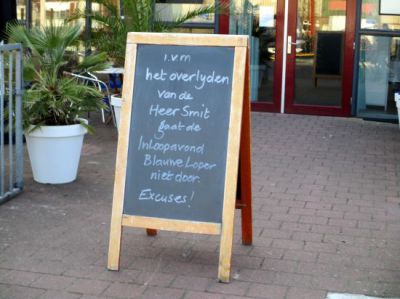 i.v.m
het overlyden
van de
Heer Smit
gaat de
Inloopavond
Blauwe Loper
niet door.
Excuses!